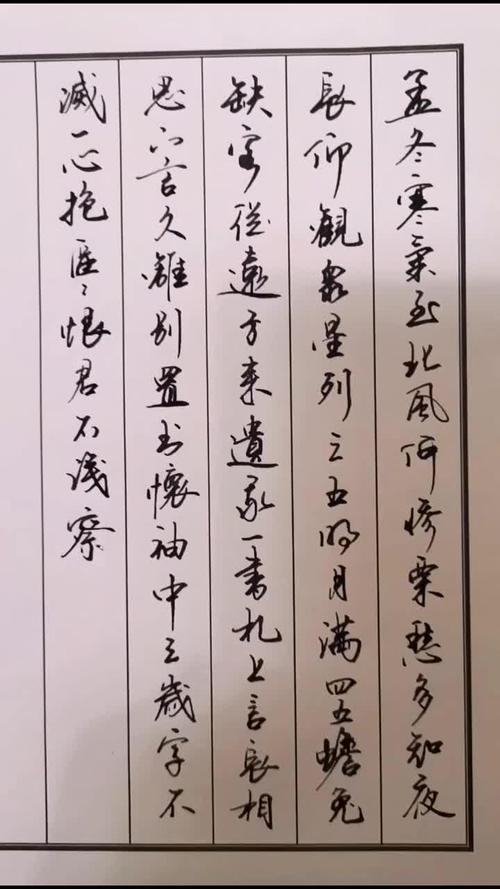 孟冬寒氣至北風何惨栗愁多知夜
長仰觀眾星列三五明月滿四五蟾兔
缺客從遠方来遺我一書札上言長相
思下言久離別置書懷袖中三歲字不
滅一心抱區々恨君不識察